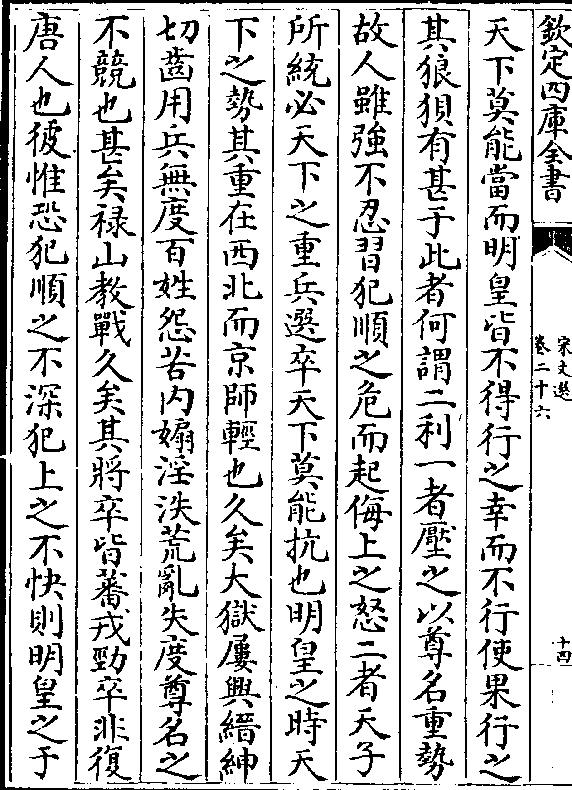 欽定四庫全書
宋文選
卷二十六
十四
天下莫能當而明皇皆不得行之幸而不行使果行之
其狼狽有甚于此者何謂二利一者壓之以尊名重勢
故人雖強不忍習犯順之危而起侮上之怒二者天子
所統必天下之重兵選卒天下莫能抗也明皇之時天
下之勢其重在西北而京師輕也久矣大獄屢興縉紳
切齒用兵無度百姓怨苦内嬖淫泆荒亂失度尊名之
不競也甚矣禄山教戰久矣其將卒皆蕃戎勁卒非復
唐人也彼惟恐犯順之不深犯上之不快則明皇之于